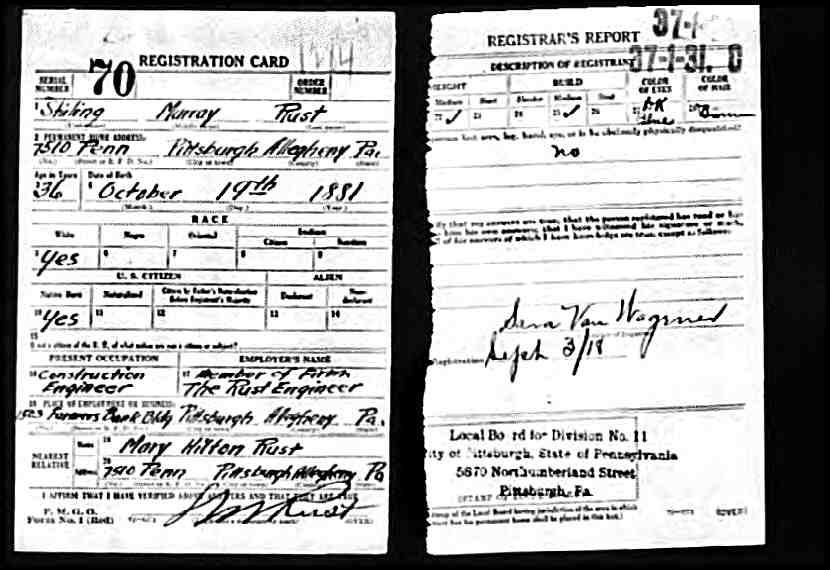 REGISTRATION CARD
SERIAL NUMBER 70 ORDER NUMBER 1214
1 Stirling Murray Rust
2 PERMANENT HOME ADDRESS:
7510 Penn Pittsburgh Allegheny Pa.
(No.) (Street or R. F. D. No.) (City or town) (County) (State)
Age in Years Date of Birth
36 October 19th 1881
(Month.) (Day.) (Year.)
RACE
White Negro Oriental Indian
Citizen Noncitizen
5 Yes 6 7 8 9
U. S. CITIZEN ALIEN
Native Born Naturalized Citizen by Father's Naturalization Before Registrant's Majority Declarant Non-declarant
10 Yes 11 12 13 14
15
If not a citizen of the U. S., of what nation are you a citizen or subject?
PRESENT OCCUPATION EMPLOYER'S NAME
16 Construction 17 Member of Firm
Engineer The Rust Engineer
18 PLACE OF EMPLOYMENT OR BUSINESS:
1503 Farmers Bank Bldg Pittsburgh Allegheny Pa.
NEAREST RELATIVE
Name 19 Mary Hilton Rust
Address 20 7510 Penn Pittsburgh Allegheny Pa
I AFFIRM THAT I HAVE VERIFIED ABOVE ANSWERS AND THAT THEY ARE TRUE
P. M. G. O.
Form No. 1 (Red)
S M Rust
(OVER)
REGISTRAR'S REPORT 37-1-
DESCRIPTION OF REGISTRANT 37-1-31. C
HEIGHT BUILD COLOR OF EYES COLOR OF HAIR
Medium Short Slender Medium Stout
22 ✓ 23 24 25 ✓ 26 27 DK
Blue Brown
person lost arm, leg, hand, eye, or is he obviously physically disqualified?
no
that my answers are true; that the person registered has read or has
his own answers; that I have witnessed his signature or mark,
of his answers of which I have knowledge are true, except as follows:
Sara Van Wagener
Registration Sept 3/18
Local Board for Division No. 11
City of Pittsburgh, State of Pennsylvania
5870 Northumberland Street
Pittsburgh, Pa.
(STAMP OF LOCAL BOARD)
stamp of the Local Board having jurisdiction of the area in which
has his permanent home shall be placed in this box.)
(OVER)